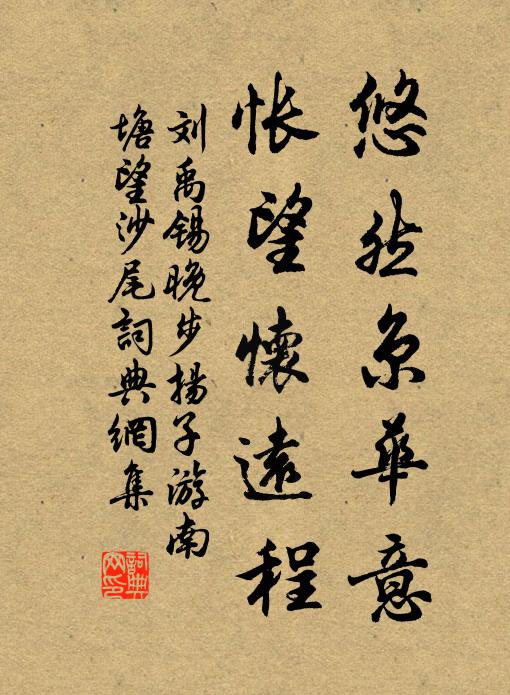 悠然京華意
悵望懷遠程
刘禹锡晚步揚子游南
塘望沙尾詞典網集
詞典网印